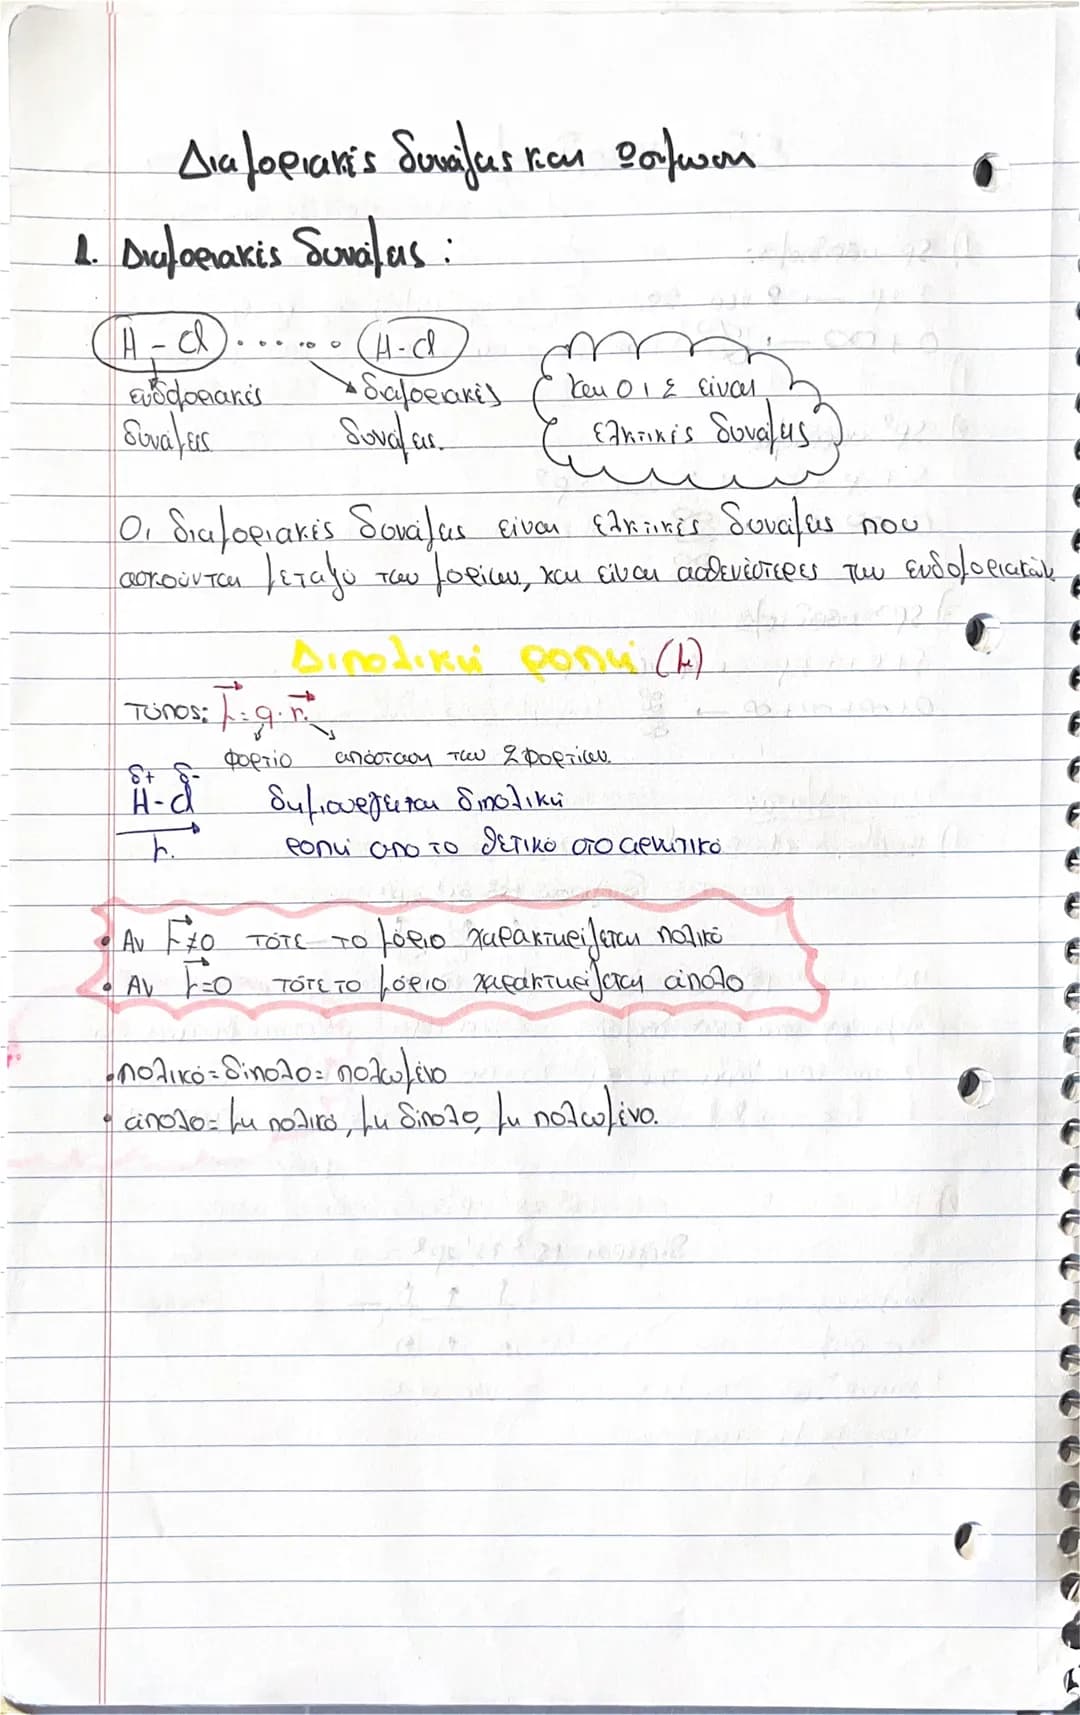 Διαμοριακές δυνάμεις και ώσμωση
1. Διαμοριακές δυνάμεις :
H - Cl ........ H - Cl
ενδομοριακές δυνάμεις
διαμοριακές δυνάμεις.
και οι 2 είναι
ελκτικές δυνάμεις
Οι διαμοριακές δυνάμεις είναι ελκτικές δυνάμεις που
ασκούνται μεταξύ των μορίων, και είναι ασθενέστερες των ενδομοριακών
Διπολική ροπή (μ)
Τύπος: μ = q · r.
φορτίο απόσταση των 2 φορτίων.
δ+ δ-
H - Cl δημιουργείται διπολική
μ. ροπή από το θετικό στο αρνητικό
• Αν μ≠0 τότε το μόριο χαρακτηρίζεται πολικό
• Αν μ=0 τότε το μόριο χαρακτηρίζεται άπολο
• πολικό = δίπολο = πολωμένο
• άπολο = μη πολικό, μη δίπολο, μη πολωμένο.